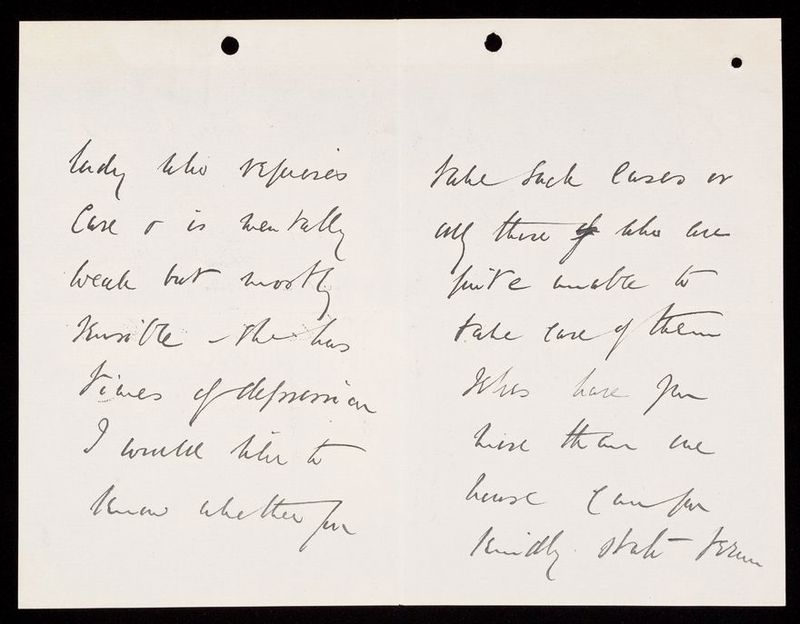 lady who requires
Care & is mentally
weak but mostly
sensible – she has
times of depression
I would like to
know whether you
take such cases or
only those who are
quite unable to
take care of them
selves have you
more than one
house Can you
kindly state terms